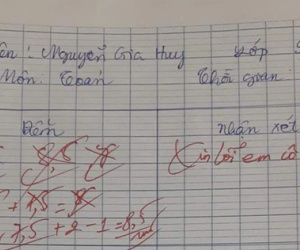 ên: Nguyễn Gia Huy Lớp
Môn: Toán Thời gian
Điểm nhận xét
8,5 Xin lỗi em cô
+ 7,5 = 8
7,5 + 2 - 1 = 8,5